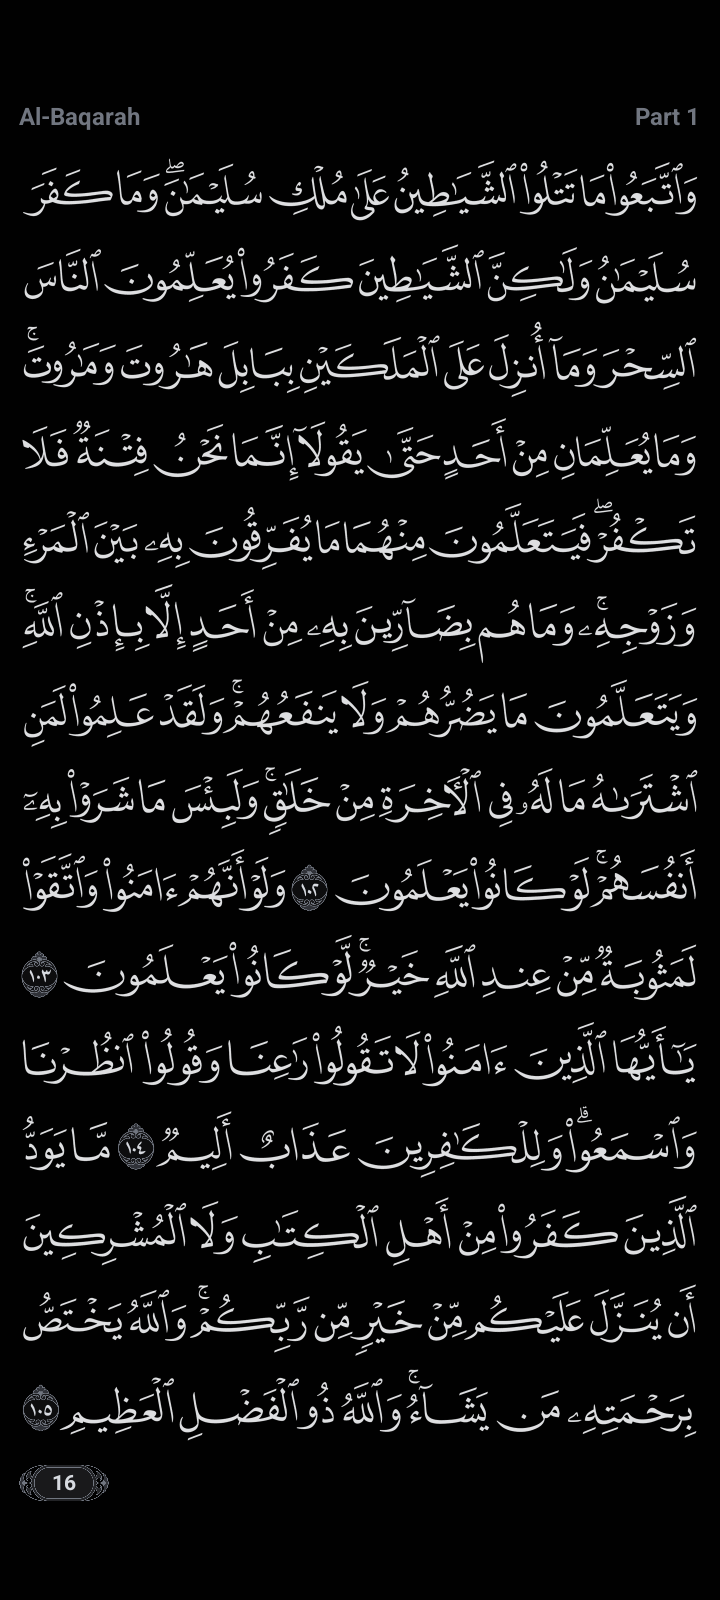 Al-Baqarah Part 1
وَٱتَّبَعُوا۟ مَا تَتْلُوا۟ ٱلشَّيَـٰطِينُ عَلَىٰ مُلْكِ سُلَيْمَـٰنَ ۖ وَمَا كَفَرَ
سُلَيْمَـٰنُ وَلَـٰكِنَّ ٱلشَّيَـٰطِينَ كَفَرُوا۟ يُعَلِّمُونَ ٱلنَّاسَ
ٱلسِّحْرَ وَمَآ أُنزِلَ عَلَى ٱلْمَلَكَيْنِ بِبَابِلَ هَـٰرُوتَ وَمَـٰرُوتَ ۚ
وَمَا يُعَلِّمَانِ مِنْ أَحَدٍ حَتَّىٰ يَقُولَآ إِنَّمَا نَحْنُ فِتْنَةٌ فَلَا
تَكْفُرْ ۖ فَيَتَعَلَّمُونَ مِنْهُمَا مَا يُفَرِّقُونَ بِهِۦ بَيْنَ ٱلْمَرْءِ
وَزَوْجِهِۦ ۚ وَمَا هُم بِضَآرِّينَ بِهِۦ مِنْ أَحَدٍ إِلَّا بِإِذْنِ ٱللَّهِ ۚ
وَيَتَعَلَّمُونَ مَا يَضُرُّهُمْ وَلَا يَنفَعُهُمْ ۚ وَلَقَدْ عَلِمُوا۟ لَمَنِ
ٱشْتَرَىٰهُ مَا لَهُۥ فِى ٱلْـَٔاخِرَةِ مِنْ خَلَـٰقٍ ۚ وَلَبِئْسَ مَا شَرَوْا۟ بِهِۦٓ
أَنفُسَهُمْ ۚ لَوْ كَانُوا۟ يَعْلَمُونَ ١٠٢ وَلَوْ أَنَّهُمْ ءَامَنُوا۟ وَٱتَّقَوْا۟
لَمَثُوبَةٌ مِّنْ عِندِ ٱللَّهِ خَيْرٌ ۖ لَّوْ كَانُوا۟ يَعْلَمُونَ ١٠٣
يَـٰٓأَيُّهَا ٱلَّذِينَ ءَامَنُوا۟ لَا تَقُولُوا۟ رَٰعِنَا وَقُولُوا۟ ٱنظُرْنَا
وَٱسْمَعُوا۟ ۗ وَلِلْكَـٰفِرِينَ عَذَابٌ أَلِيمٌ ١٠٤ مَّا يَوَدُّ
ٱلَّذِينَ كَفَرُوا۟ مِنْ أَهْلِ ٱلْكِتَـٰبِ وَلَا ٱلْمُشْرِكِينَ
أَن يُنَزَّلَ عَلَيْكُم مِّنْ خَيْرٍ مِّن رَّبِّكُمْ ۚ وَٱللَّهُ يَخْتَصُّ
بِرَحْمَتِهِۦ مَن يَشَآءُ ۚ وَٱللَّهُ ذُو ٱلْفَضْلِ ٱلْعَظِيمِ ١٠٥
16